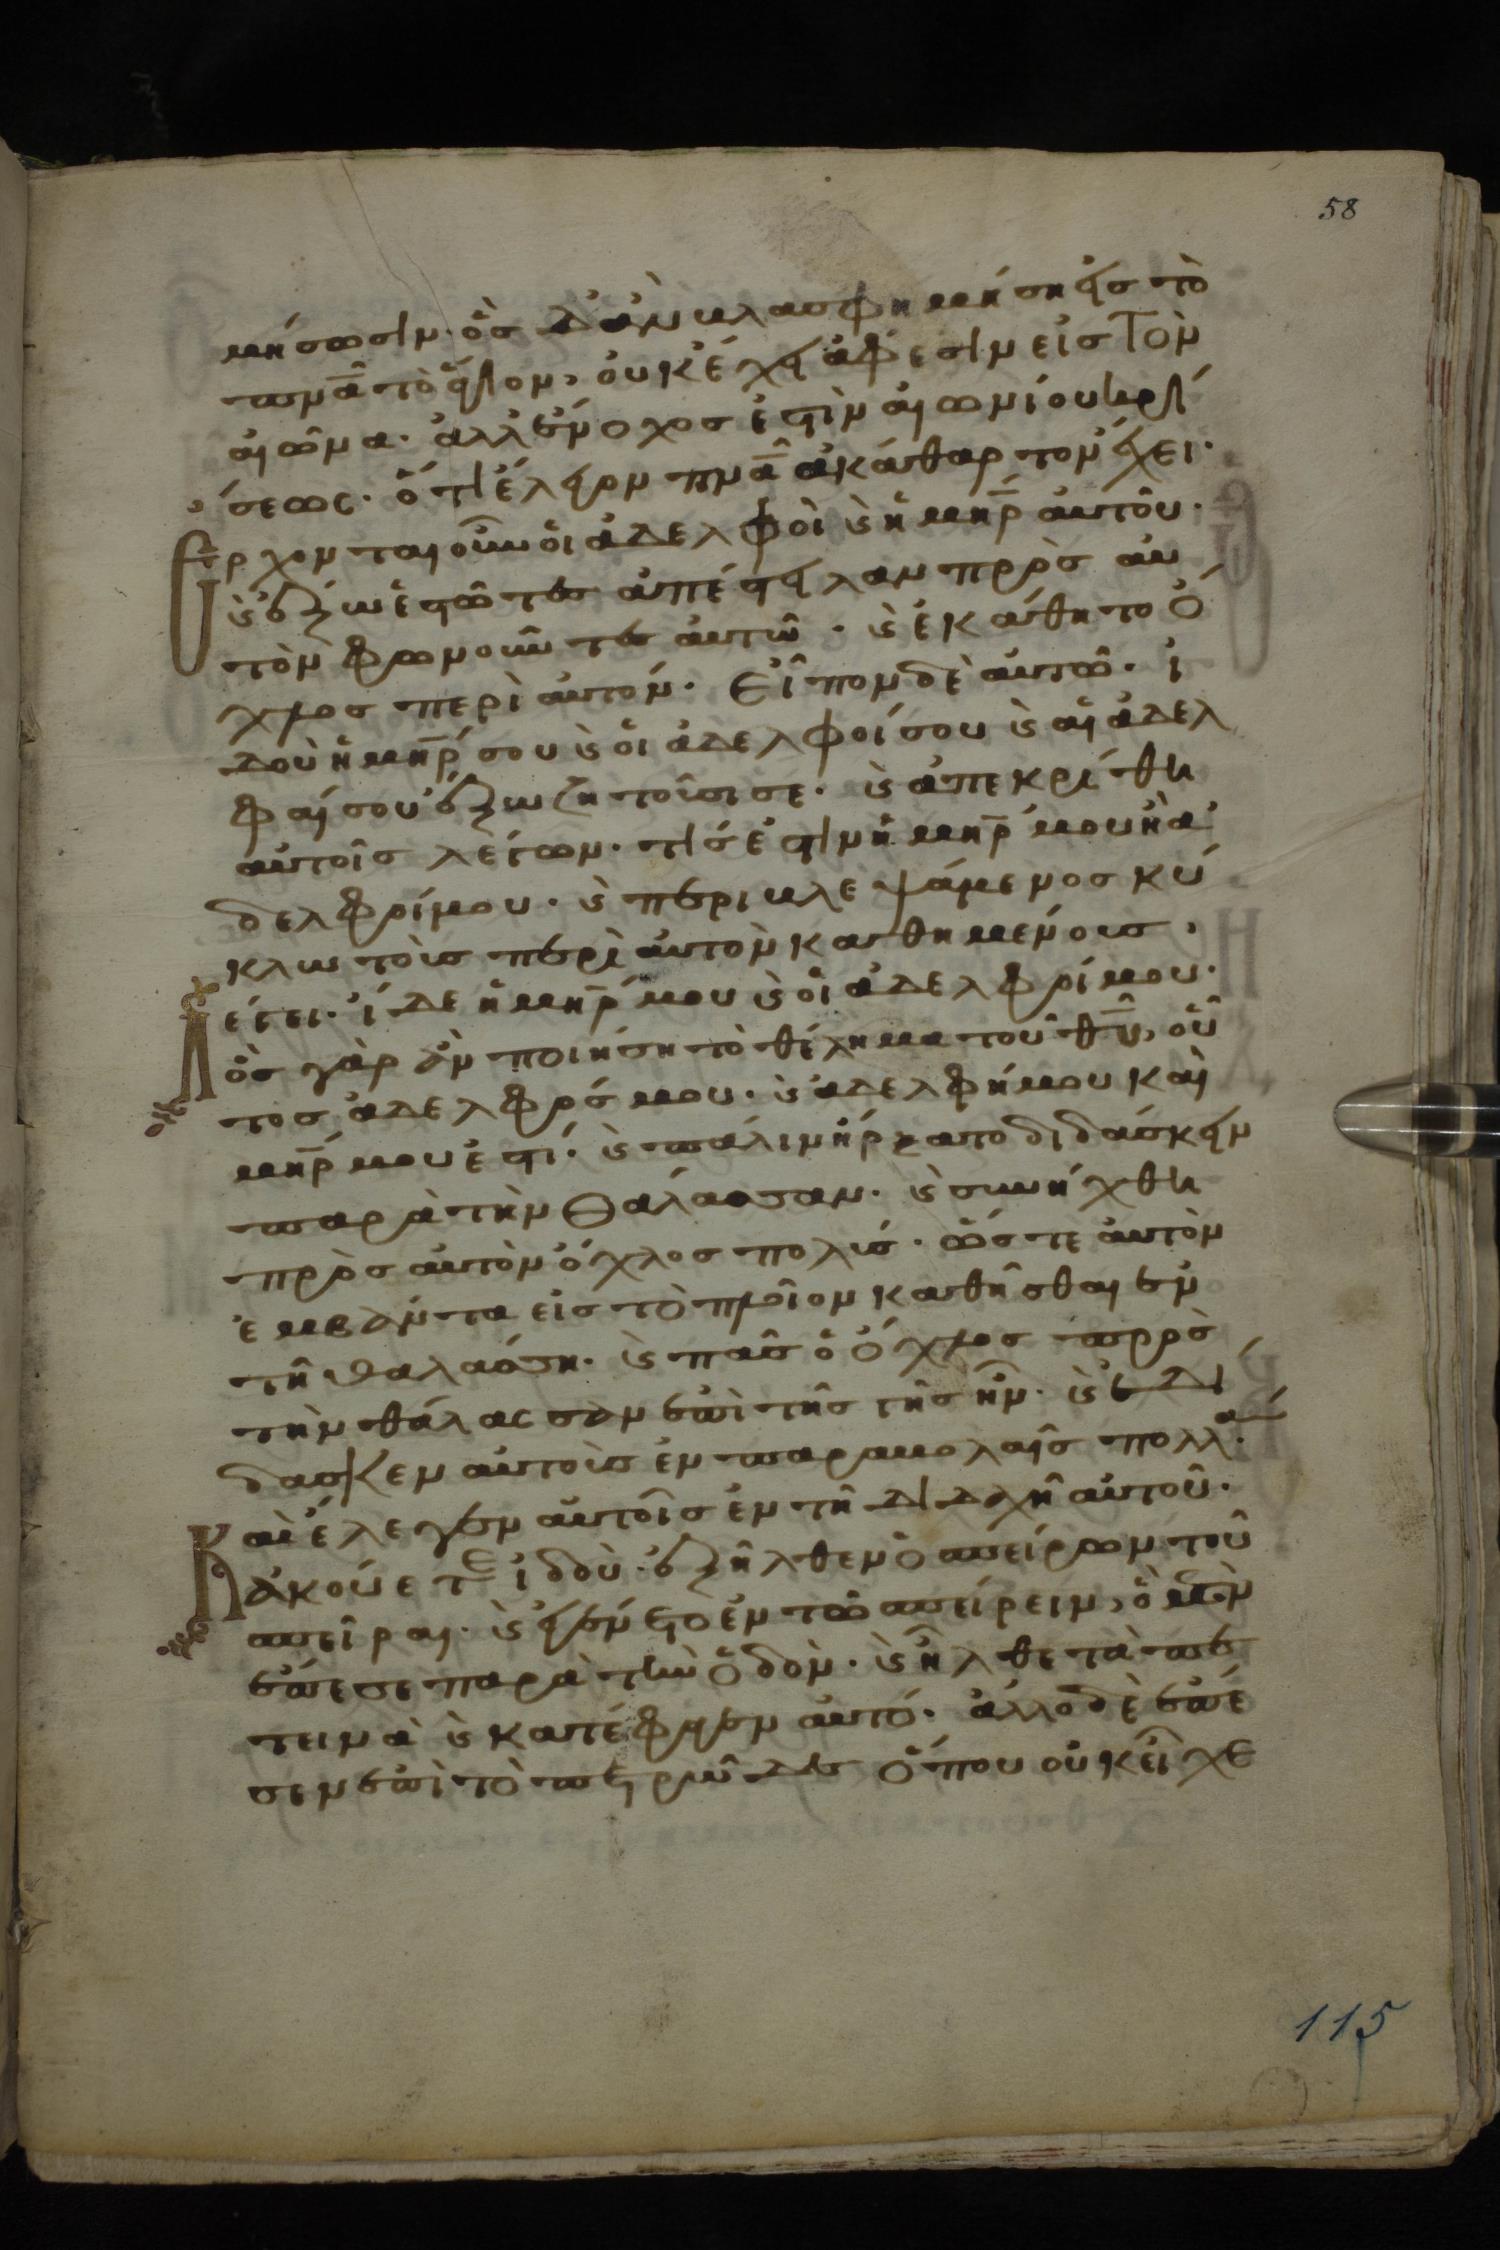 58
μήσωσιν· ὃς δ' ἂν βλασφημήσῃ εἰς τὸ
πνᾶ τὸ ἅγιον, οὐκ ἔχει ἄφεσιν εἰς τὸν
αἰῶνα· ἀλλ' ἔνοχος ἐστὶν αἰωνίου κρί
σεως· ὅτι ἔλεγον πνᾶ ἀκάθαρτον ἔχει·
Ἔρχονται οὖν οἱ ἀδελφοὶ ϗ ἡ μηρ̄ αὐτοῦ·
ϗ ἔξω ἑστῶτες ἀπέστειλαν πρὸς αὐ
τὸν φωνοῦντες αὐτῶ· ϗ ἐκάθητο ὄ
χλος περὶ αὐτόν· Εἶπον δὲ αὐτῶ· ἰ
δοὺ ἡ μηρ̄ σου ϗ οἱ ἀδελφοί σου ϗ αἱ ἀδελ
φαί σου ἔξω ζητοῦσι σε· ϗ ἀπεκρίθη
αὐτοῖς λέγων· τίς ἐστιν ἡ μηρ̄ μου ἢ ἀ
δελφοί μου· ϗ περιβλεψάμενος κύ
κλω τοὺς περὶ αὐτὸν καθημένους,
λέγει· ἴδε ἡ μηρ̄ μου ϗ οἱ ἀδελφοί μου·
ὃς γὰρ ἂν ποιήση τὸ θέλημα τοῦ θῡ, οὗ
τος ἀδελφός μου· ϗ ἀδελφή μου καὶ
μηρ̄ μου ἐστί· ϗ πάλιν ἤρξατο διδάσκειν
παρὰ τὴν θάλασσαν· ϗ συνήχθη
πρὸς αὐτὸν ὄχλος πολύς· ὥστε αὐτὸν
ἐμβάντα εἰς τὸ πλοῖον καθῆσθαι ἐν
τῆ θαλάσση· ϗ πᾶς ὁ ὄχλος πρὸς
τὴν θάλασσαν ἐπὶ τῆς γῆς ἦν· ϗ ἐδί
δασκεν αὐτοὺς ἐν παραβολαῖς πολλά·
Καὶ ἔλεγεν αὐτοῖς ἐν τῆ διδαχῆ αὐτοῦ·
ἀκούετε ἰδοὺ· ἐξῆλθεν ὁ σπείρων τοῦ
σπεῖραι· ϗ ἐγένετο ἐν τῶ σπείρειν, ὃ μὲν
ἔπεσε παρὰ τὴν ὁδόν· ϗ ἦλθε τὰ πε
τεινὰ ϗ κατέφαγεν αὐτό· ἄλλο δὲ ἔπε
σεν ἐπὶ τὸ πετρῶδες ὅπου οὐκ εἶχε
115